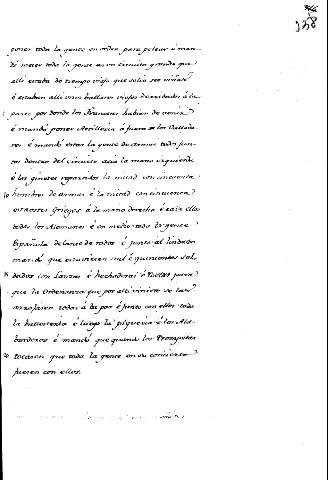 338
poner toda la gente en orden para pelear é man-
dó meter toda la gente en un circuito grande que
allí estaba de tiempo viejo que solia ser viñas
é estaban allí unos ballares viejos derribados á la
parte por donde los Franceses habian de venir
é mandó poner Artilleria á fuera de los Vallada-
res é mandó estar la gente de Armas toda jun-
ta dentro del Circuito acia la mano izquierda
é los ginetes repartidos la mitad con cincuenta
10 hombres de armas é la mitad con cincuenta
estraotes Griegos á la mano derecha é cabe ellos
todos los Alemanes é en medio toda la gente
Española delante de todos é junto al lindero
mandó que estuviesen mil é quinientos sol-
15 dados con Lanzas é hechadores é Picas para
que la Ordenanza que por allí viniese se las
arrojasen todas á la par é junto con ellos toda
la Ballesteria é luego la piqueria é los Ala-
barderos é mandó que quando los Trompetas
20 tocasen que toda la gente en su concierto
fuesen con ellos.